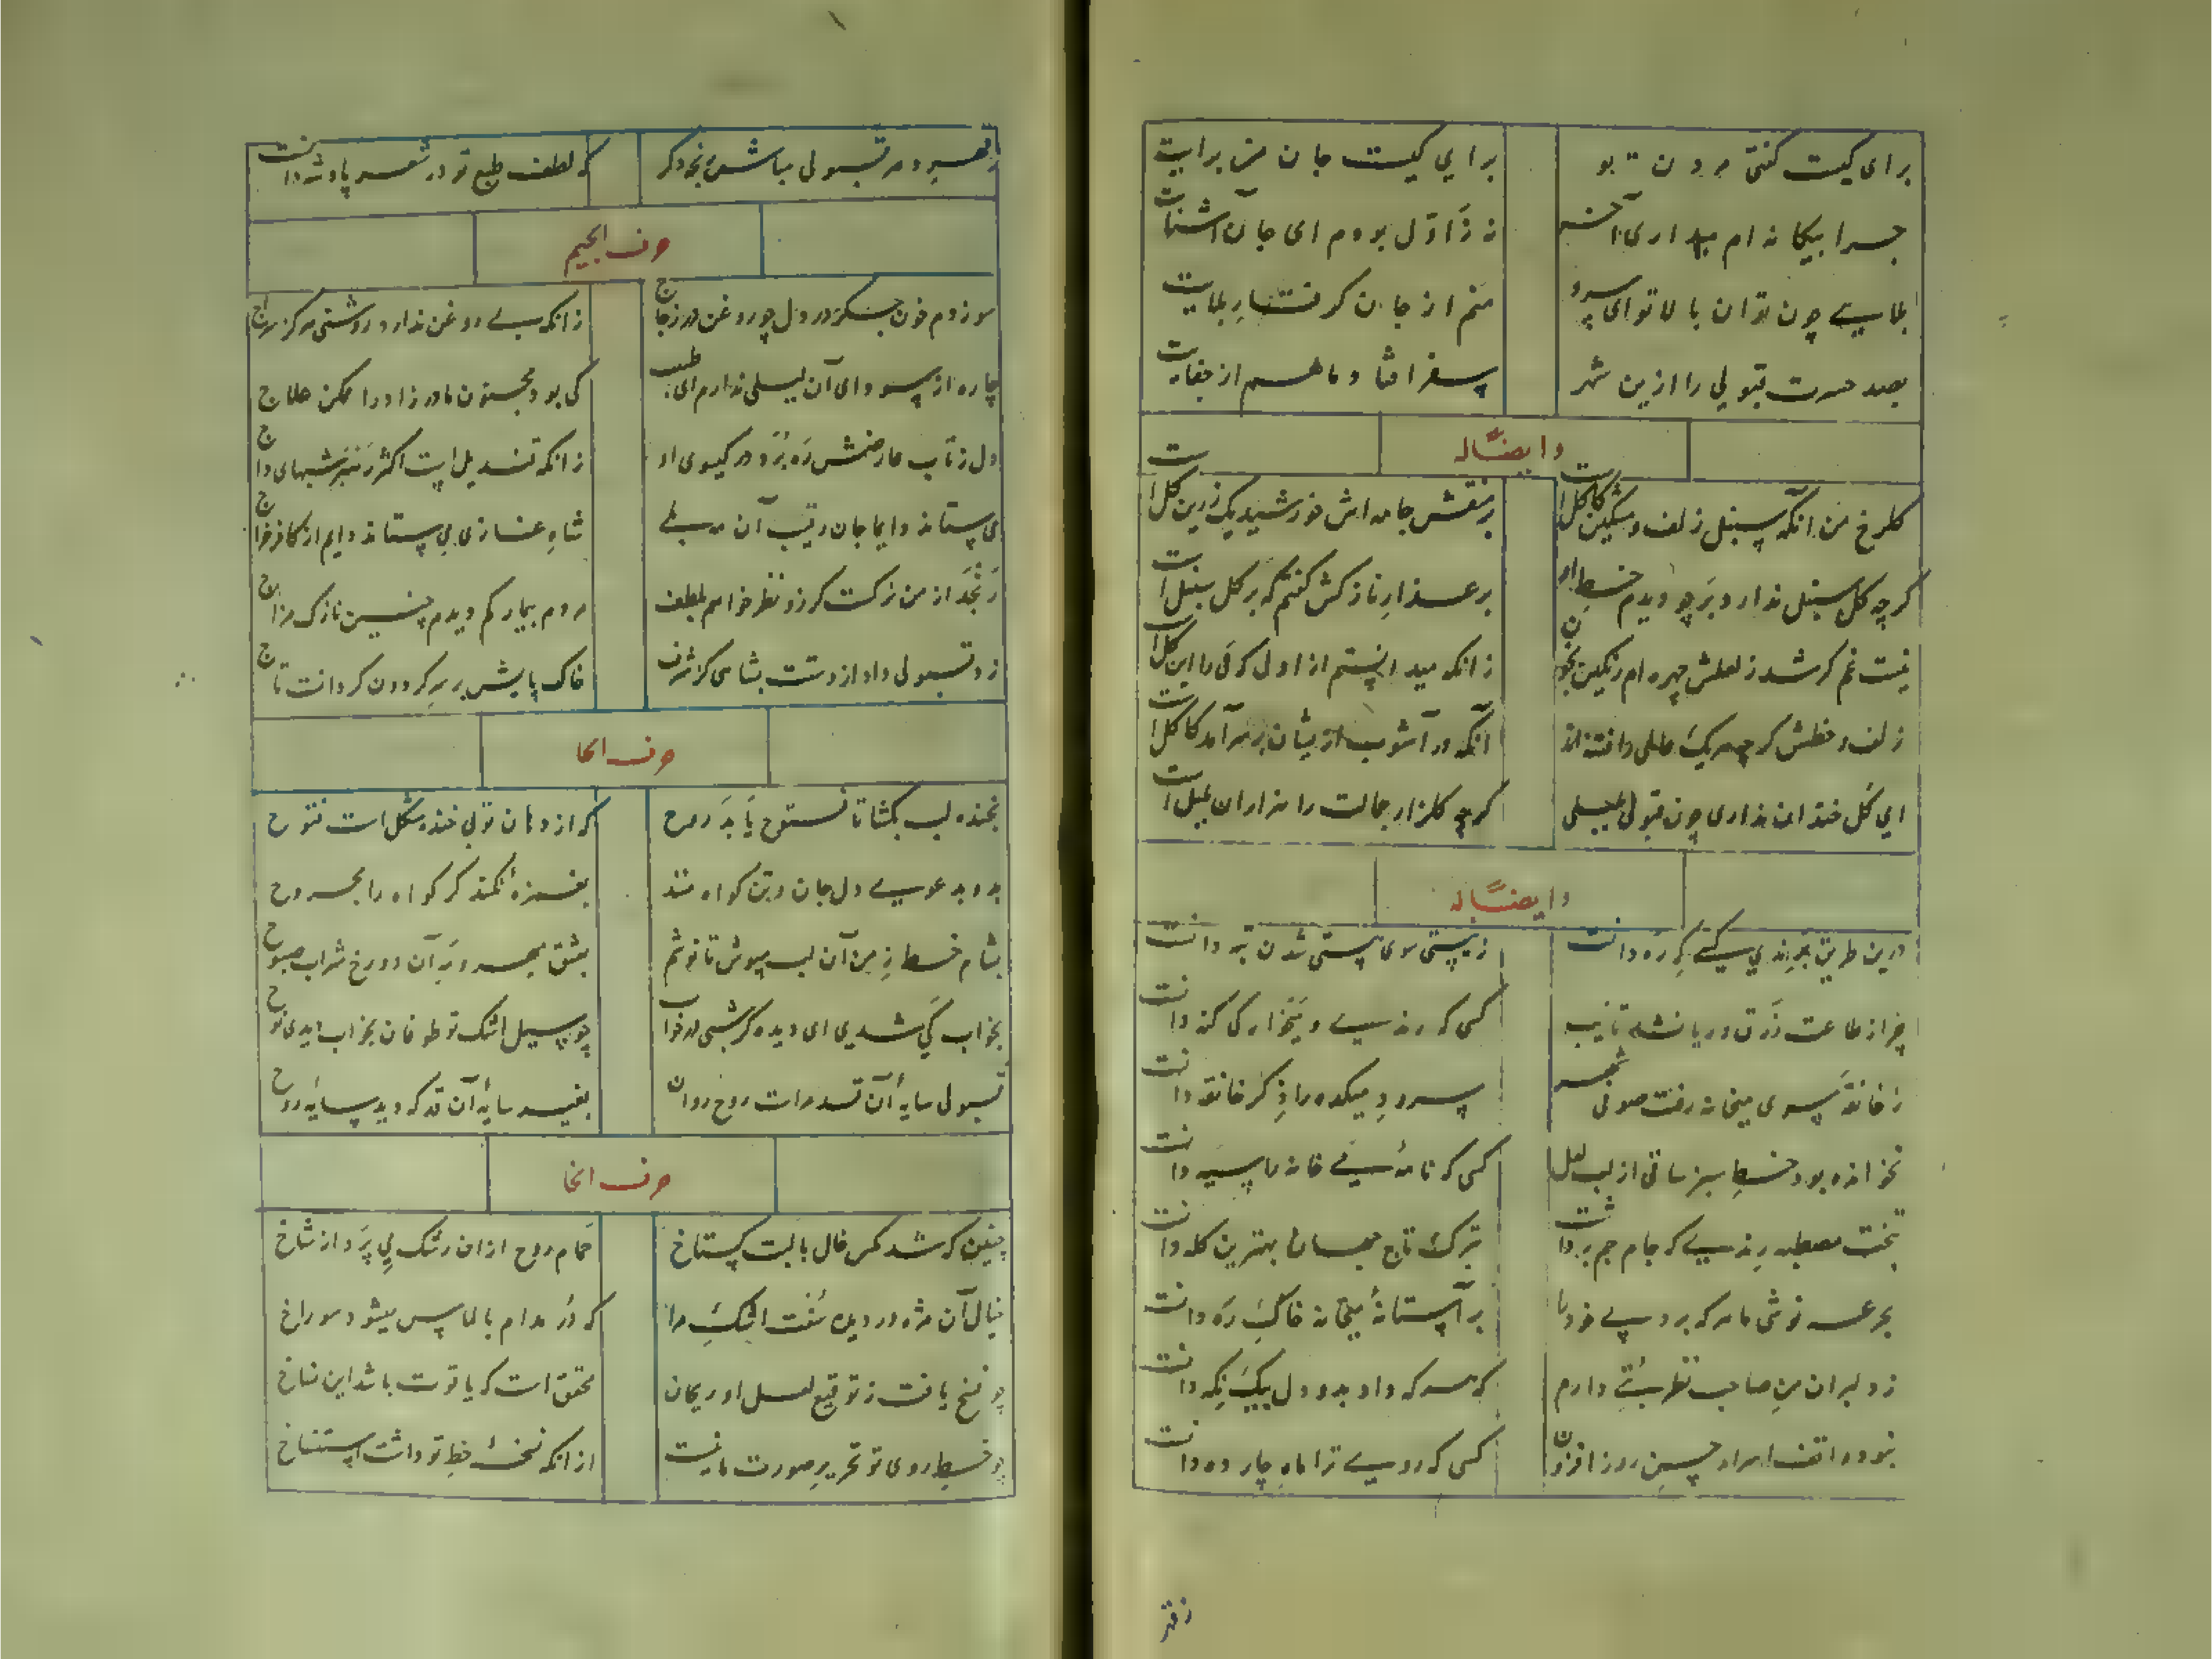 برای کیست کفتی مردن تو برایی کیست جان من برایت
چرا بیکانه ام میداری آخر نه زاول بودم ای جان آشنایت
بلایی چون توان بالا تو ای سرو منم از جان کرفتار بلایت
بصد حسرت قبولی را ازین شهر سفر افتاد و ما هم از جفایت
وایضًا له
کلرخ من آنکه سنبل زلف و مشکین کاکل است بر منقش جامه اش خورشید یک زرین کل است
کرچه کل سنبل ندارد بر چو دیدم خط او بر عذار نازکش کفتم که بر کل سنبل است
نیست غم کر شد ز لعلش چهره ام رنکین بخون زانکه میدانستم از اول که می را این کل است
زلف و خطش کرچه هر یک عاملی را فتنه اند آنکه در آشوب ازیشان بر سر آمد کاکل است
ای کل خندان نداری چون قبولی بلبلی کرچه کلزار جمالت را هزاران بلبل است
وایضًا له
درین طریق برندی کسی که ره دانست ز نیستی سوی هستی شدن تبه دانست
جز از طاعت زرق و ریا نشد تایب کسی که رندی و میخوارکی کنه دانست
ز خانقه سوی میخانه رفت صوفی شهر سرود میکده را ذکر خانقه دانست
نخوانده بود خط سبز ساقی از لب لعل کسی که نامهٔ می خانه را سیه دانست
بتخت مصطبه رندی که جام جم برداشت بترک تاج جهان بهترین کله دانست
بجرعه نوشی ما هر که برد پی خود را بر آستانهٔ میخانه خاک ره دانست
ز دلبران من صاحب نظر بتی دارم که هر که داد بدو دل بیک نکه دانست
نبود واقف اسرار حسن روز افزون کسی که روی ترا ماه چارده دانست
ز فقر
قبولی مباش که لطف طبع تو در شعر پادشه دانست
حرف الجیم
سوزدم خون جکر در دل چو روغن در زجاج زانکه بی روغن ندارد روشنی هرکز سراج
چاره از سودای آن لیلی ندارم ای طبیب کی بود مجنون مادرزاد را ممکن علاج
دل ز تاب عارضش ره برد در کیسوی او زانکه قندیل است اکثر رهبر شبهای داج
می ستاند دایما جان رقیب آن مه بلی شاه غازی می ستاند دایم از کافر خراج
رنجد از من نرکست کر زو نظر خواهم بلطف مردم بیمار کم دیدم چنین نازک مزاج
زد قبولی داد از دستت بشاهی کز شرف خاک پایش بر سر کردون کردانست تاج
حرف الحا
بخنده لب بکشا تا فتوح یابد روح که از دهان تو بی خنده مشکل است فتوح
بدو بدعوی دل جان و تن کواه منند بغمزه نکند کر کواه را مجروح
بشام خط ز من آن لب مپوش تا نوشم بعشق مهر و مه آن دو رخ شراب صبوح
بخواب کی شدی ای دیده کر شبی در خواب چو سیل اشک تو طوفان بخواب دیدی نوح
قبولی سایهٔ آن قد مراست روح روان بغیر سایهٔ آن قد که دید سایه روح
حرف الخا
چنین که شد مکس خال با لبت کستاخ حمام روح ازان رشک می پرد از شاخ
خیال آن مژه در دیده سفت اشک مرا که در مدام بالماس میشود سوراخ
چو نسخ یافت ز توقیع لعل او ریحان محقق است که یاقوت باشد این نساخ
چو خط روی تو تحریر صورت مانیست ازانکه نسخهٔ خط تو داشت استنساخ